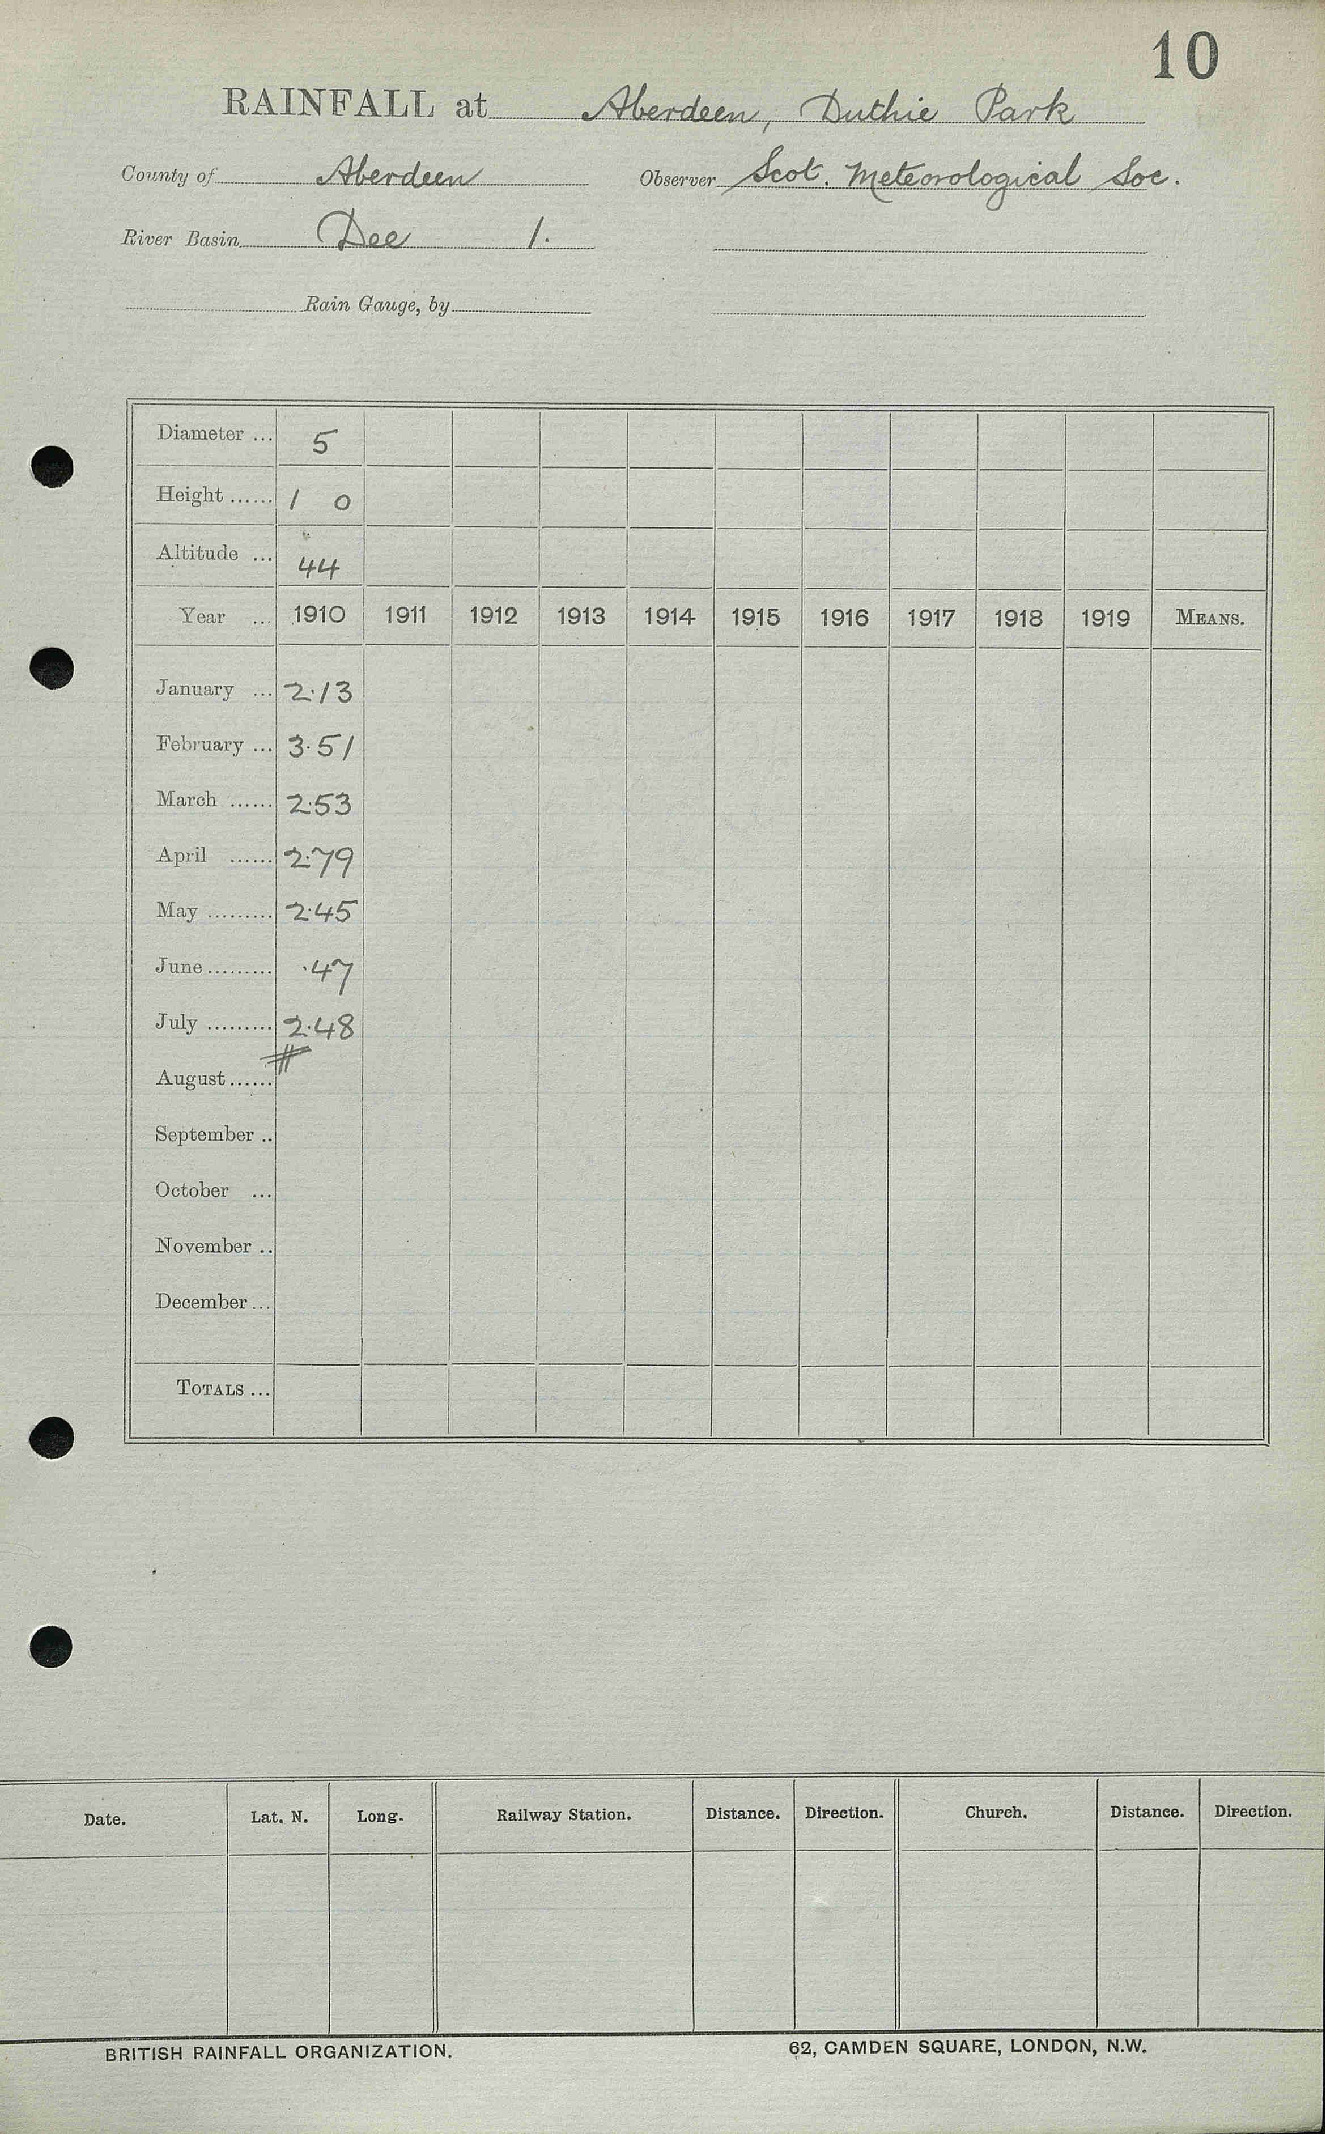 10
RAINFALL at Aberdeen, Duthie Park
County of Aberdeen Observer Scot. Meteorological Soc.
River Basin Dee 1.
Rain Gauge, by
Diameter ... 5
Height ...... 1 0
Altitude ... 44
Year ... 1910 1911 1912 1913 1914 1915 1916 1917 1918 1919 MEANS.
January ... 2.13
February ... 3.51
March ...... 2.53
April ...... 2.79
May ......... 2.45
June ......... .47
July ......... 2.48
August ......
September ..
October ...
November ..
December ...
TOTALS ...
Date. Lat. N. Long. Railway Station. Distance. Direction. Church. Distance. Direction.
BRITISH RAINFALL ORGANIZATION. 62, CAMDEN SQUARE, LONDON, N.W.